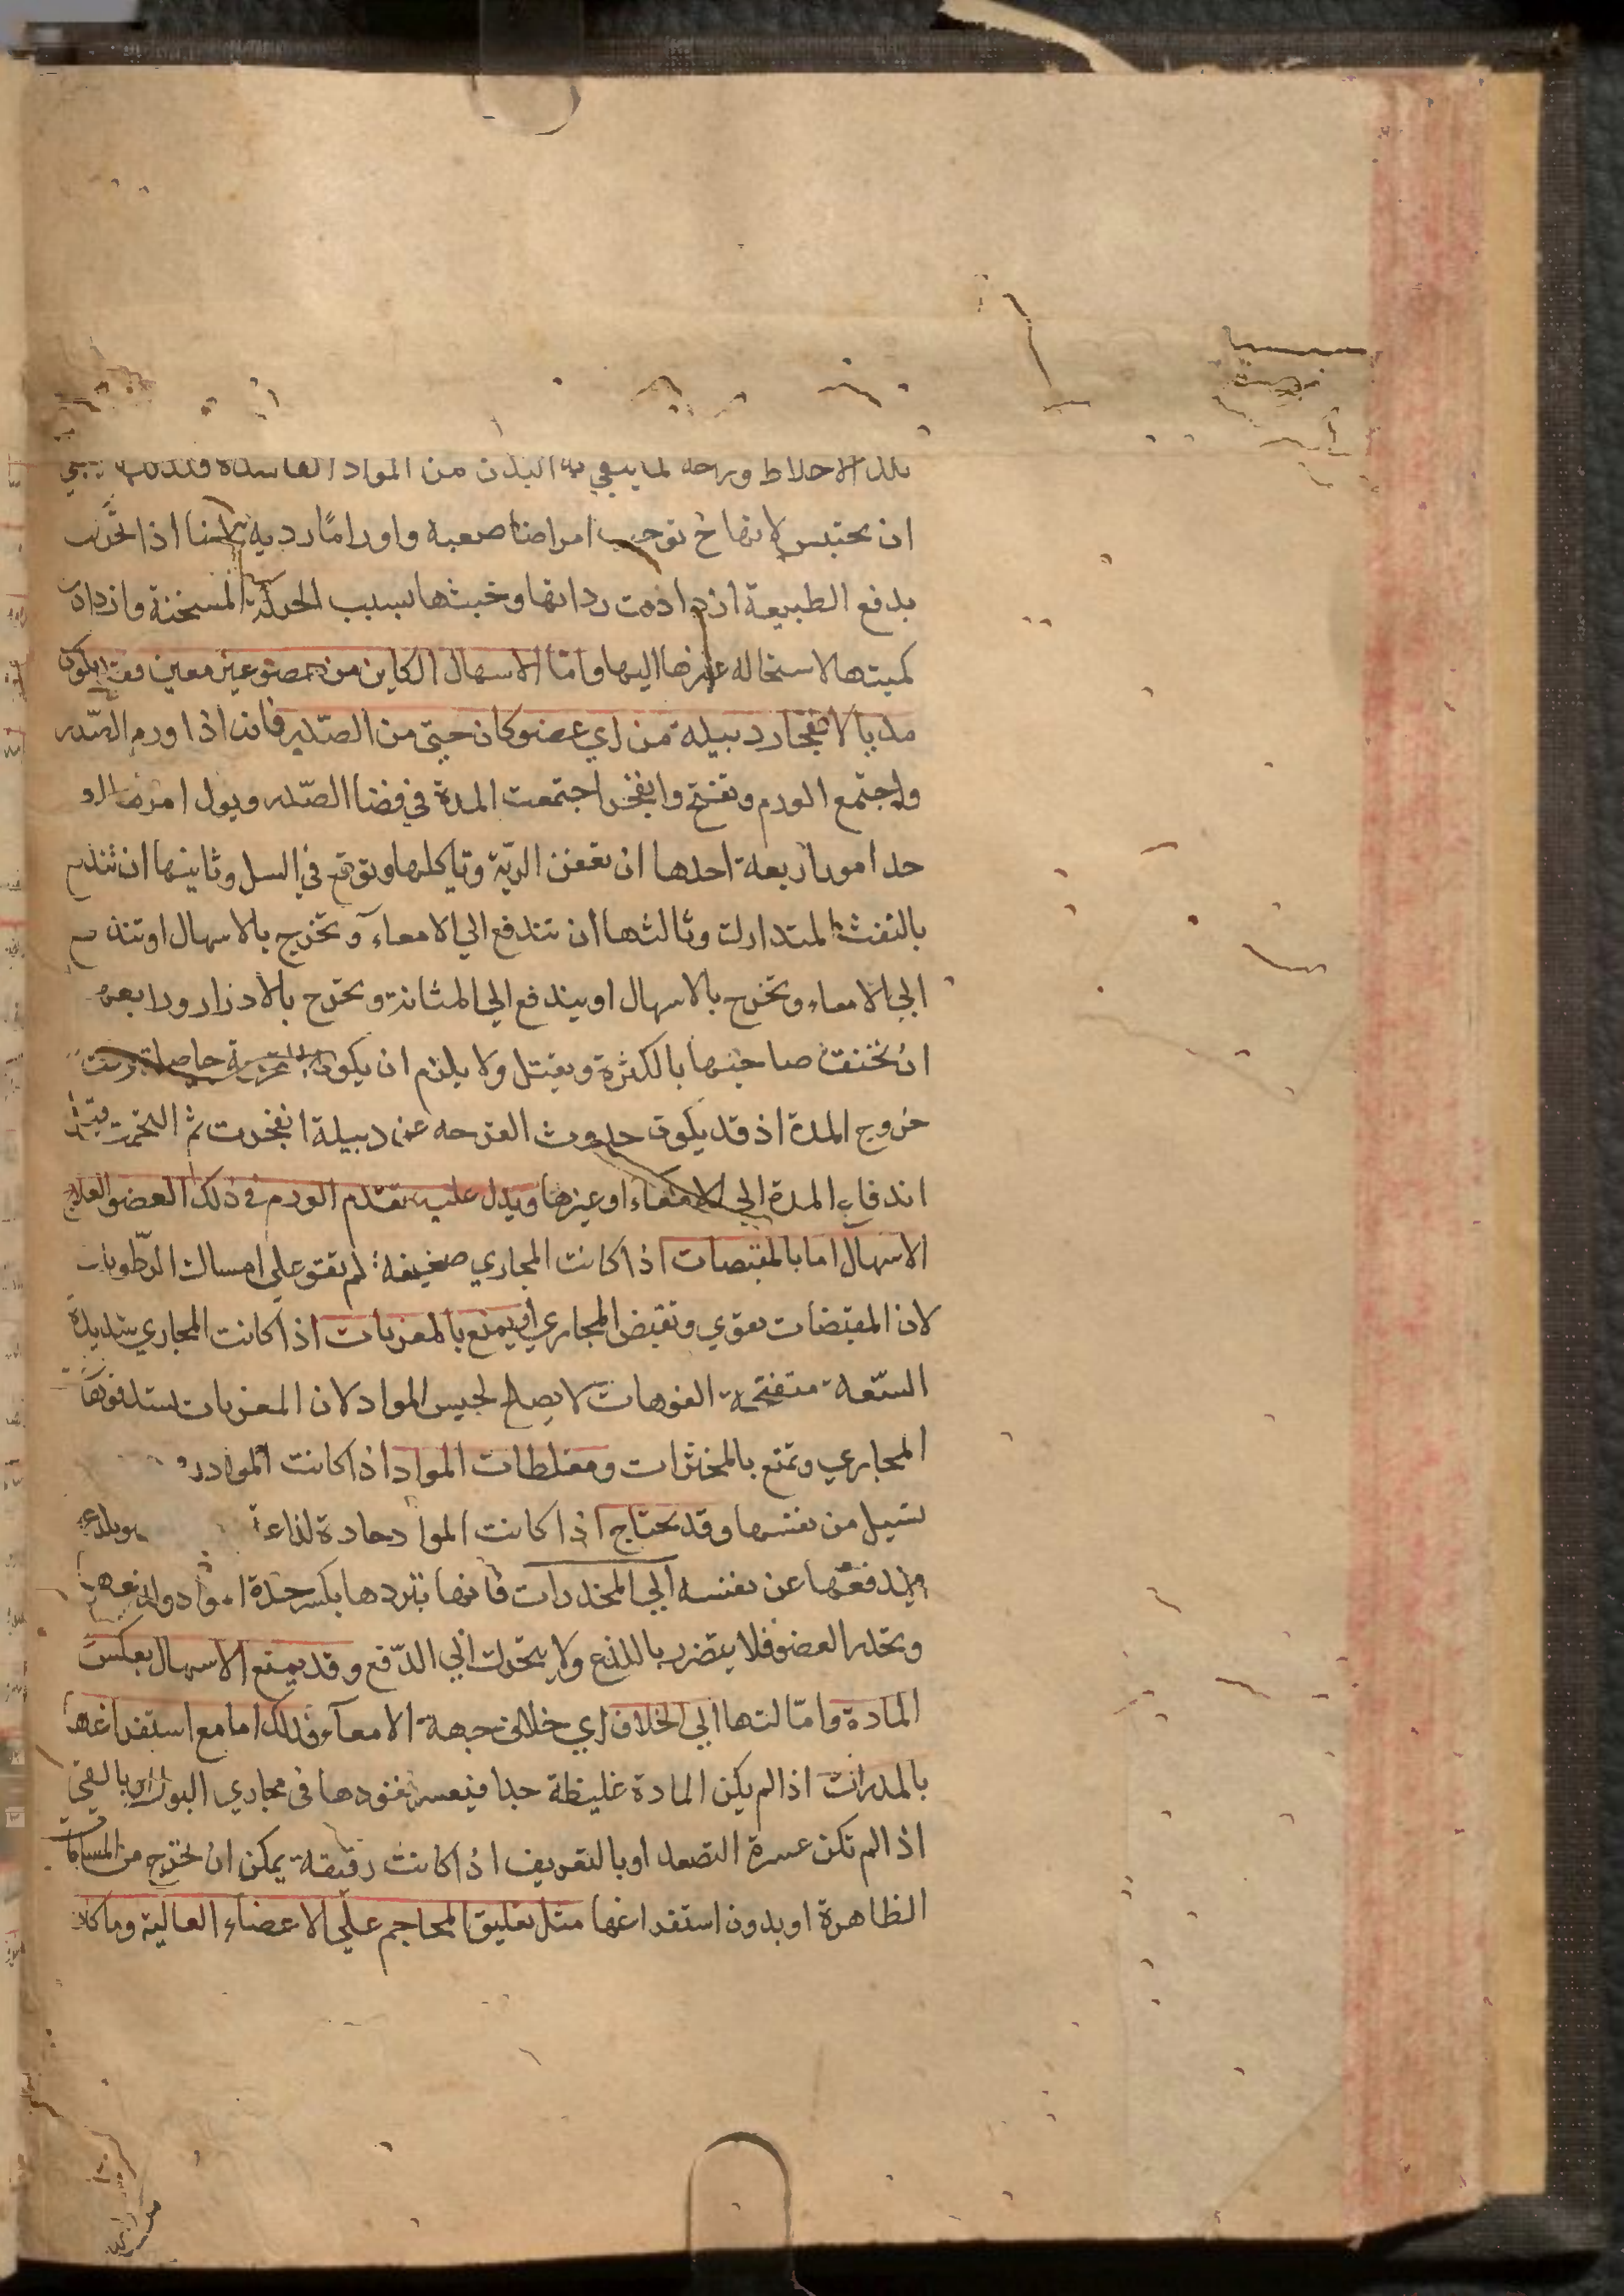 تلك الاخلاط ورحه لما يبقي به البدن من المواد الفاسدة
ان يحتبس لانها ح توجب امراضا صعبة واوراما ردية لانها اذا تحركت
بدفع الطبيعة ازدادت رداتها وخبثها بسبب الحركة المسخنة وازدادت
كميتها لاستحاله غيرها اليها واما الاسهال الكاين من عضو غير معين فقد يكون
مديا لانفجار دبيلة من اي عضو كان حتي من الصدر فانه اذا ورم الصدر
واجتمع الورم وتفتح وانفجر اجتمعت المدة في فضا الصدر ويول امرها الي ا
حد امور اربعة احدها ان تعفن الرية وتاكلها وتوقع في السل وثانيها ان تندفع
بالنفث المتدارك وثالثها ان تندفع الي الامعاء وتخرج بالاسهال او تندفع
الي الامعاء وتخرج بالاسهال او يندفع الي المثانة وتخرج بالادرار ورابعها
ان تخنق صاحبها بالكثرة ويقتل ولا يلزم ان يكون القرحة حاصلة وقت
خروج المدة اذ قد يكون حدوث القرحه عن دبيلة انفجرت ثم التحمت قبل
اندفاع المدة الي الامعاء او غيرها ويدل عليه تقدم الورم في ذلك العضو العلاج
الاسهال اما بالمقبضات اذا كانت المجاري ضعيفة لم تقو علي امساك الرطوبات
لان المقبضات تقوي وتقبض المجاري او يمنع بالمغريات اذا كانت المجاري شديدة
السعة متفتحة الفوهات لا يصلح لحبس المواد لان المغريات تسد فوهات
المجاري وتمنع بالمخثرات ومغلظات المواد اذا كانت المواد
تسيل من نفسها وقد يحتاج اذا كانت المواد حادة لذاعة
ويدفعها عن نفسه الي المخدرات فانها تبردها بكسر حدة المواد ولذعها
وتخدر العضو فلا يتضرر باللذع ولا يتحرك الي الدفع وقد يمنع الاسهال بعكس
المادة وامالتها الي الخلاف اي خلاف جهة الامعاء وذلك اما مع استفراغها
بالمدرات اذا لم يكن المادة غليظة جدا فيعسر نفوذها في مجاري البول او بالقي
اذا لم تكن عسرة التصعد او بالتعريف اذا كانت رقيقة يمكن ان تخرج من المسامات
الظاهرة او بدون استفراغها مثل تعليق المحاجم علي الاعضاء العالية وما كان